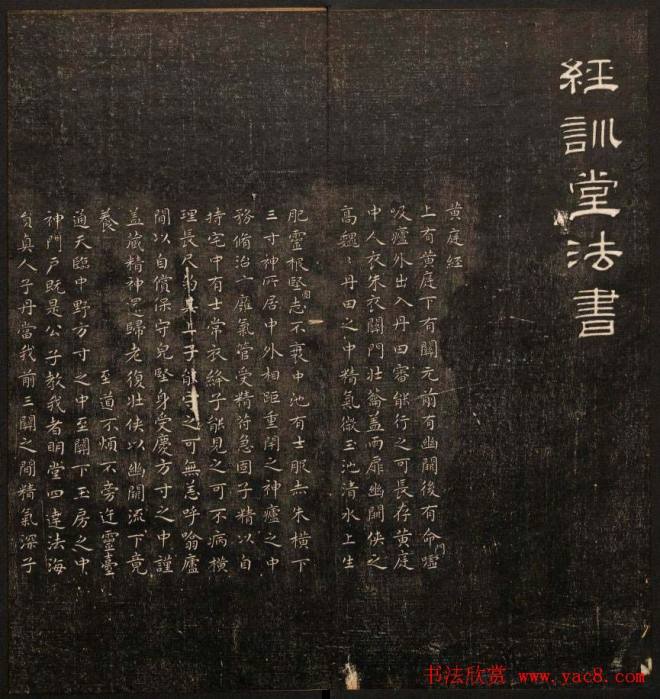 經訓堂法書
黃庭經
上有黃庭下有關元前有幽闕後有命門噓
吸廬外出入丹田審能行之可長存黃庭
中人衣朱衣關門壯籥蓋兩扉幽闕俠之
高魏丶丹田之中精氣微玉池清水上生
肥靈根堅固志不衰中池有士服赤朱橫下
三寸神所居中外相距重閉之神廬之中
務脩治玄廱氣管受精符急固子精以自
持宅中有士常衣絳子能見之可不病橫
理長尺約其上子能守之可無恙呼翕廬
間以自償保守皃堅身受慶方寸之中謹
蓋藏精神還歸老復壯俠以幽闕流下竟
養 至道不煩不旁迕靈臺
通天臨中野方寸之中至關下玉房之中
神門戶既是公子教我者明堂四達法海
負真人子丹當我前三關之間精氣深子
书法欣赏 www.yac8.com